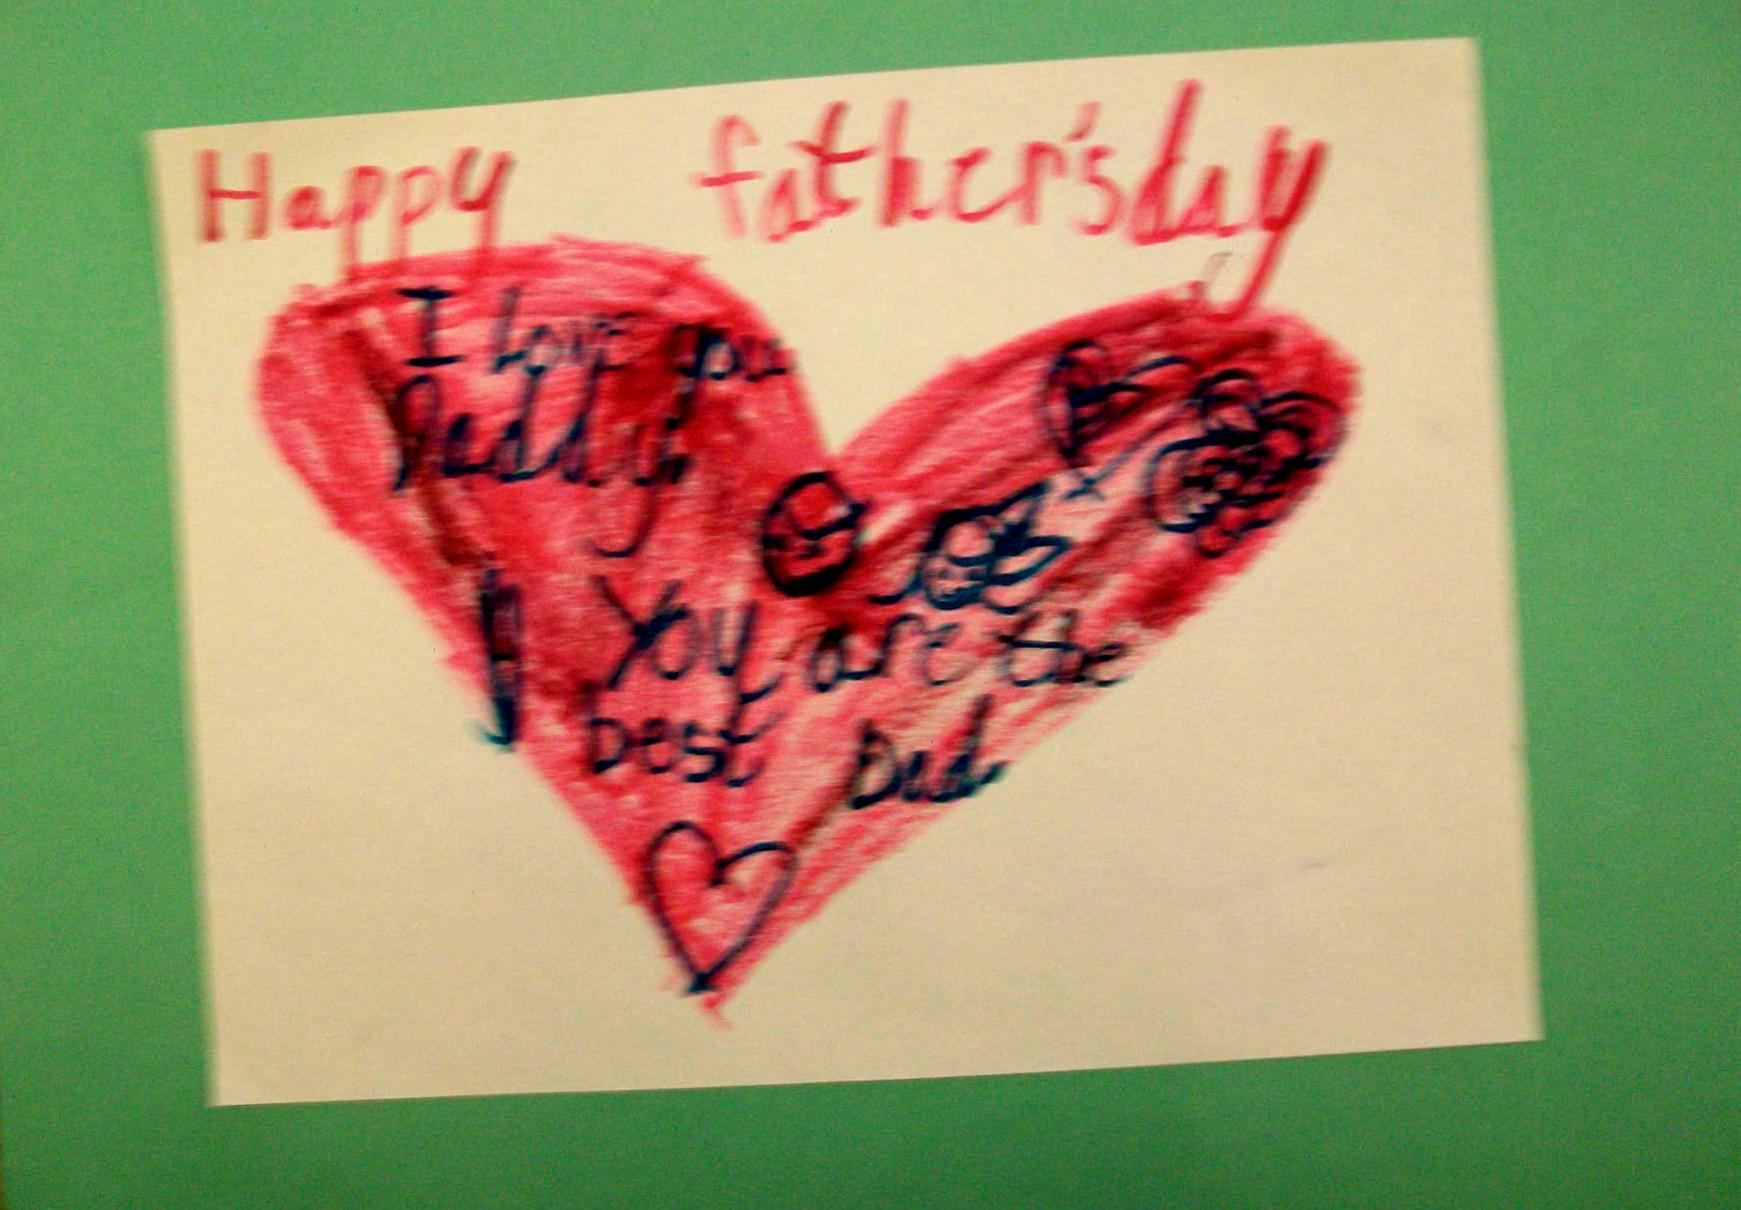 Happy father's day
I love you
Daddy
You are the
best Dad